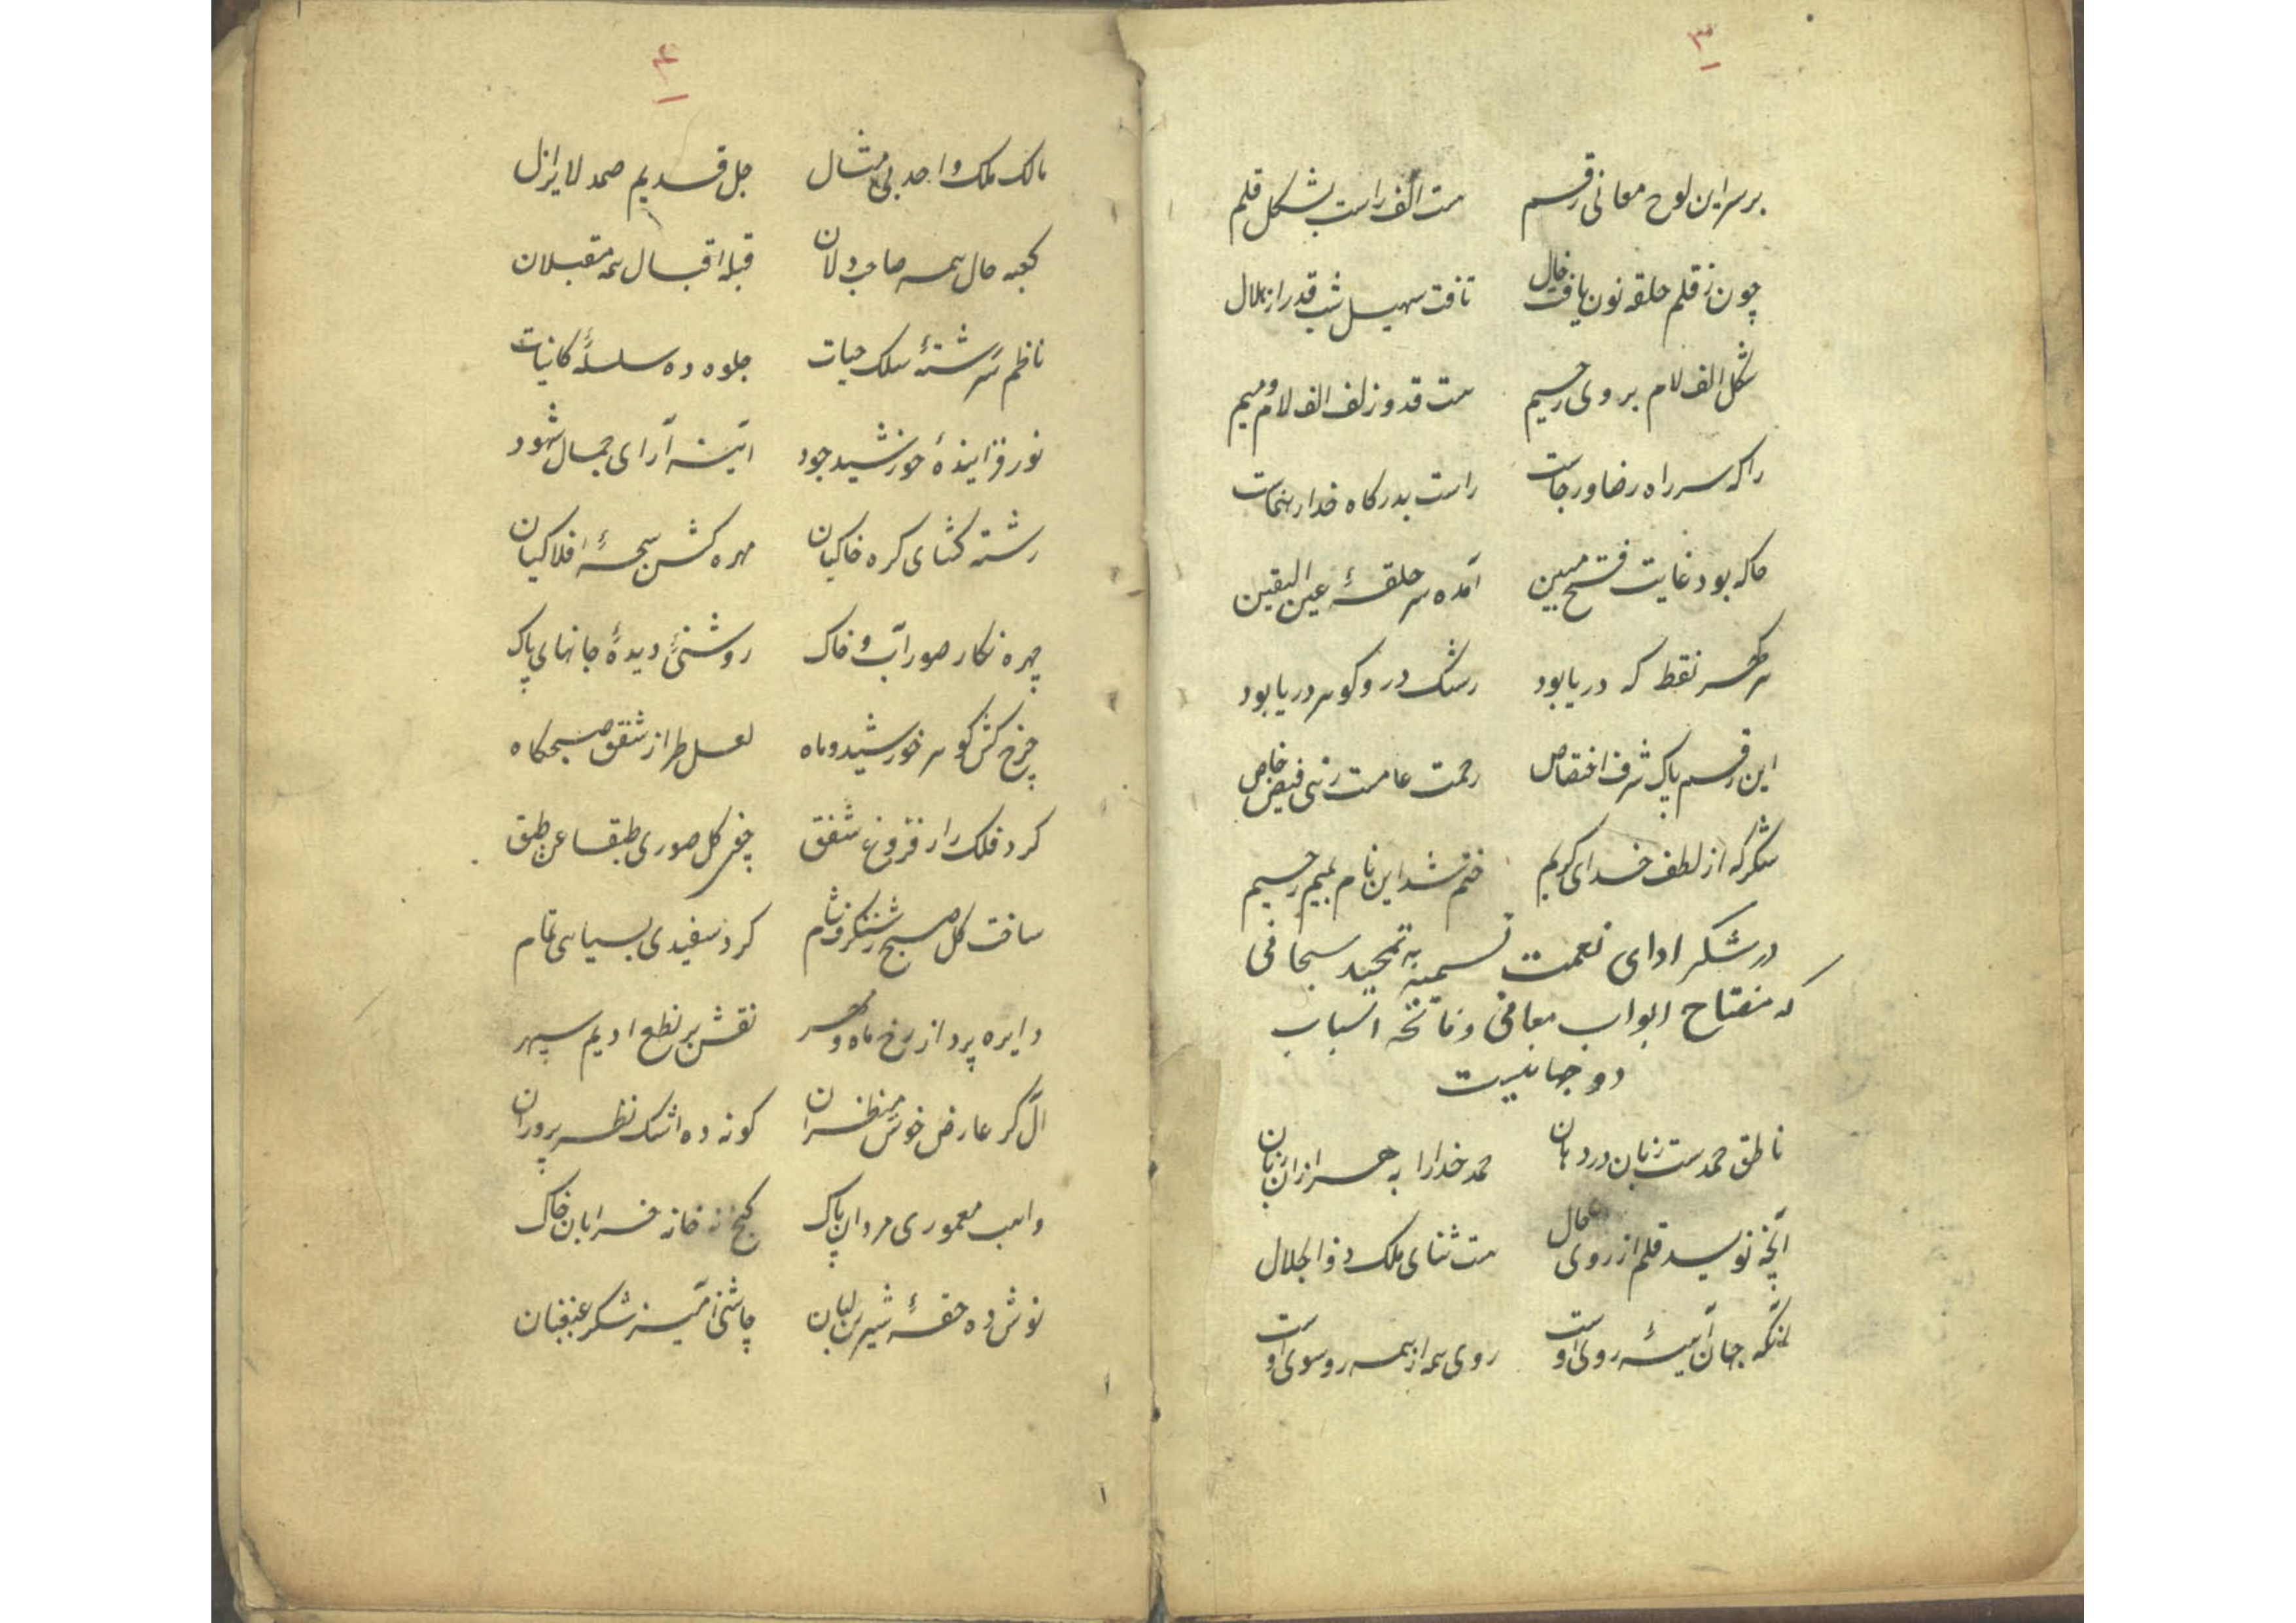 ۳
بر سر این لوح معانی رقم ست الف راست بشکل قلم
چون ز قلم حلقه نون یافت خال تافت سهیل شب قدر از هلال
شکل الف لام بروی رحیم ست قد و زلف الف لام و میم
را که سر راه رضا و رجاست راست بدرکاه خدا رهنماست
حا که بود غایت فتح مبین آمده سر حلقۀ عین الیقین
هر کهر نقط که دریا بود رشک در و کوهر دریا بود
این رقم پاک شرف اختصاص رحمت عامست ز پی فیض خاص
شکر که از لطف خدای کریم ختم شد این نام بمیم رحیم
در شکر ادای نعمت تسمیه به تمجید سبحانی
که مفتاح ابواب معانی و فاتحه اسباب
دو جهانیست
ناطق حمدست زبان در دهان حمد خدا را به هزاران زبان
آنچه نویسد قلم از روی حال ست ثنای ملک ذو الجلال
انکه جهان آینۀ روی اوست روی همه از همه رو سوی اوست
۴
مالک ملک واحد بی مثال جل قدیم صمد لا یزل
کعبه حال همه صاحب دلان قبله اقبال همه مقبلان
ناظم سررشتۀ سلک حیات جلوه ده سلسلۀ کاینات
نور فزایندۀ خورشید جود آینه آرای جمال شهود
رشته کشای کره خاکیان مهره کش سبحۀ افلاکیان
چهره نکار صور آب و خاک روشنئ دیدۀ جانهای پاک
چرخ کش کوهر خورشید و ماه لعل طراز شفق صبحکاه
کرد فلک را ز فروغ شفق چون کل صوری طبقا عن طبق
ساخت کل صبح ز شنکرف شام کرد سفیدی بسیاهی تمام
دایره پرداز رخ ماه و مهر نقش بر نطع ادیم سپهر
آل کر عارض خوش منظران کونه ده اشک نظر پروران
واهب معموری مردان پاک کنج نه خانه خرابان خاک
نوش ده حقۀ شیرین لبان چاشنی آمیز شکر غبغبان